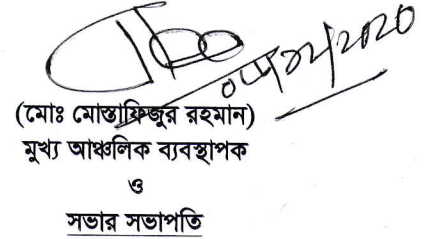 (মোঃ মোস্তাফিজুর রহমান)
মুখ্য আঞ্চলিক ব্যবস্থাপক
ও
সভার সভাপতি